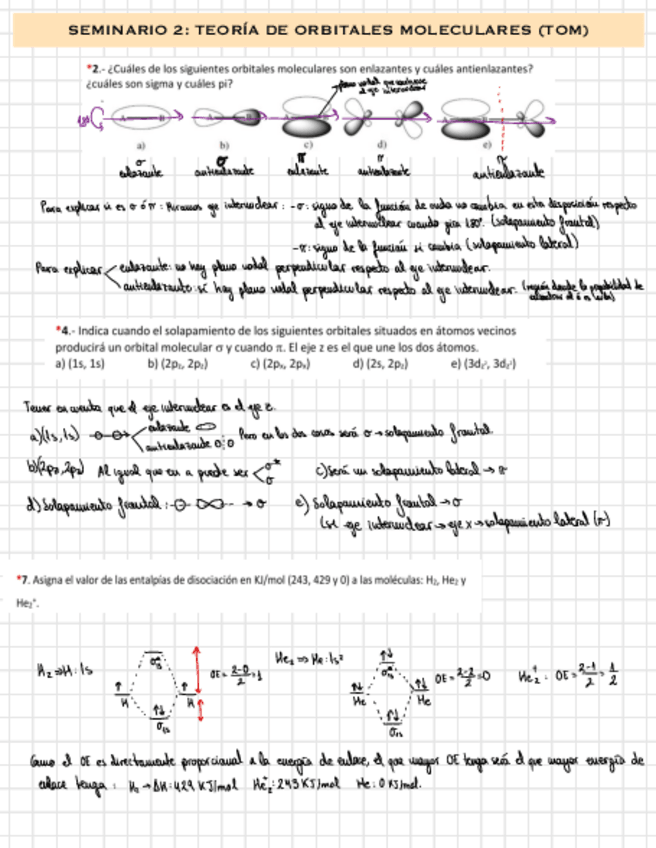 SEMINARIO 2: TEORÍA DE ORBITALES MOLECULARES (TOM)
*2.- ¿Cuáles de los siguientes orbitales moleculares son enlazantes y cuáles antienlazantes?
¿cuáles son sigma y cuáles pi?
plano nodal que contiene
el eje internuclear
180
a) b) c) d) e)
σ σ π π π
enlazante antienlazante enlazante antienlazante antienlazante
Para explicar si es σ ó π: Miramos eje internuclear: -σ: signo de la función de onda no cambia en esta disposición respecto
al eje internuclear cuando gira 180°. (solapamiento frontal)
-π: signo de la función sí cambia (solapamiento lateral)
Para explicar enlazante: no hay plano nodal perpendicular respecto al eje internuclear.
antienlazante: sí hay plano nodal perpendicular respecto al eje internuclear. (región donde la probabilidad de
encontrar el é es nula)
*4.- Indica cuando el solapamiento de los siguientes orbitales situados en átomos vecinos
producirá un orbital molecular σ y cuando π. El eje z es el que une los dos átomos.
a) (1s, 1s) b) (2p₂, 2p₂) c) (2pₓ, 2pₓ) d) (2s, 2p₂) e) (3d₂², 3d₂²)
Tener en cuenta que el eje internuclear es el eje z.
a)(1s,1s) enlazante
antienlazante Pero en los dos casos será σ → solapamiento frontal.
b)(2pz,2pz) Al igual que en a puede ser σ*
σ
c) será un solapamiento lateral → π
d) Solapamiento frontal: → σ e) Solapamiento frontal → σ
(si eje internuclear → eje x → solapamiento lateral (π)
*7. Asigna el valor de las entalpías de disociación en KJ/mol (243, 429 y 0) a las moléculas: H₂, He₂ y
He₂⁺.
H₂ ⇒ H: 1s σ*1s H H σ1s OE = 2-0/2 = 1
He₂ ⇒ He: 1s² σ*1s He He σ1s OE = 2-2/2 = 0
He₂⁺: OE = 2-1/2 = 1/2
Como el OE es directamente proporcional a la energía de enlace, el que mayor OE tenga será el que mayor energía de
enlace tenga: H₂ → ΔH: 429 KJ/mol He₂⁺: 243 KJ/mol He: 0 KJ/mol.